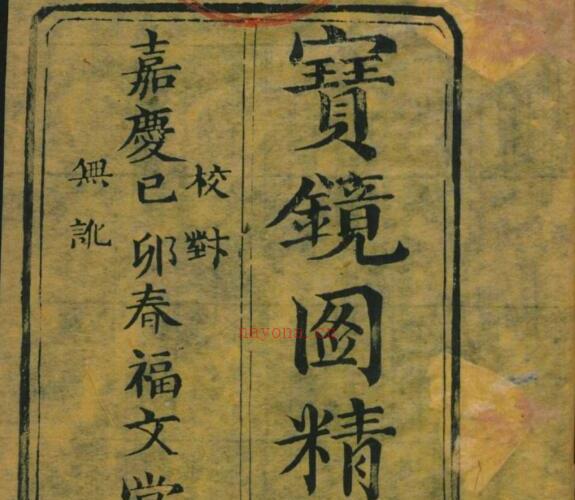 寳鏡圖精
校對
嘉慶己卯春福文堂
無訛
nayona.cn